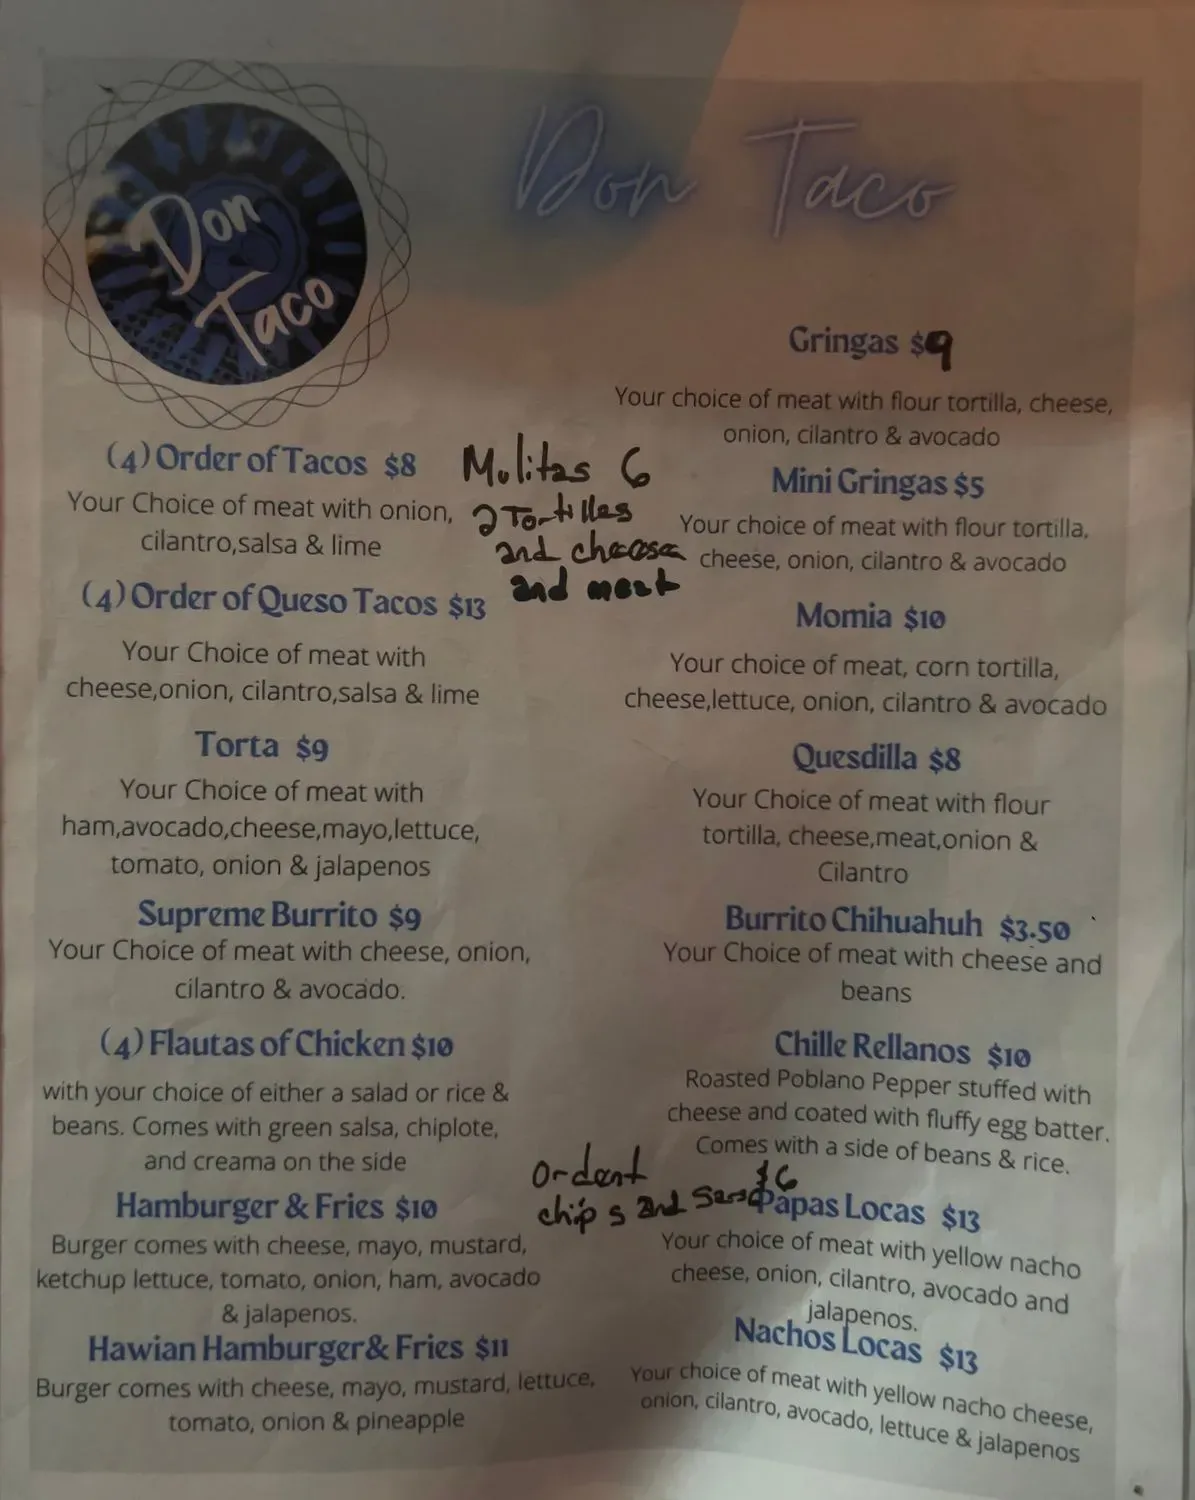 Don
Taco
Don Taco
(4) Order of Tacos $8
Your Choice of meat with onion,
cilantro,salsa & lime
(4) Order of Queso Tacos $13
Your Choice of meat with
cheese,onion, cilantro,salsa & lime
Torta $9
Your Choice of meat with
ham,avocado,cheese,mayo,lettuce,
tomato, onion & jalapenos
Supreme Burrito $9
Your Choice of meat with cheese, onion,
cilantro & avocado.
(4) Flautas of Chicken $10
with your choice of either a salad or rice &
beans. Comes with green salsa, chiplote,
and creama on the side
Hamburger & Fries $10
Burger comes with cheese, mayo, mustard,
ketchup lettuce, tomato, onion, ham, avocado
& jalapenos.
Hawian Hamburger& Fries $11
Burger comes with cheese, mayo, mustard, lettuce,
tomato, onion & pineapple
Mulitas 6
2 Tortilles
and cheese
and meat
chips and
$6
Gringas $9
Your choice of meat with flour tortilla, cheese,
onion, cilantro & avocado
Mini Gringas $5
Your choice of meat with flour tortilla,
cheese, onion, cilantro & avocado
Momia $10
Your choice of meat, corn tortilla,
cheese,lettuce, onion, cilantro & avocado
Quesdilla $8
Your Choice of meat with flour
tortilla, cheese,meat,onion &
Cilantro
Burrito Chihuahuh $3.50
Your Choice of meat with cheese and
beans
Chille Rellanos $10
Roasted Poblano Pepper stuffed with
cheese and coated with fluffy egg batter.
Comes with a side of beans & rice.
Papas Locas $13
Your choice of meat with yellow nacho
cheese, onion, cilantro, avocado and
jalapenos.
Nachos Locas $13
Your choice of meat with yellow nacho cheese,
onion, cilantro, avocado, lettuce & jalapenos